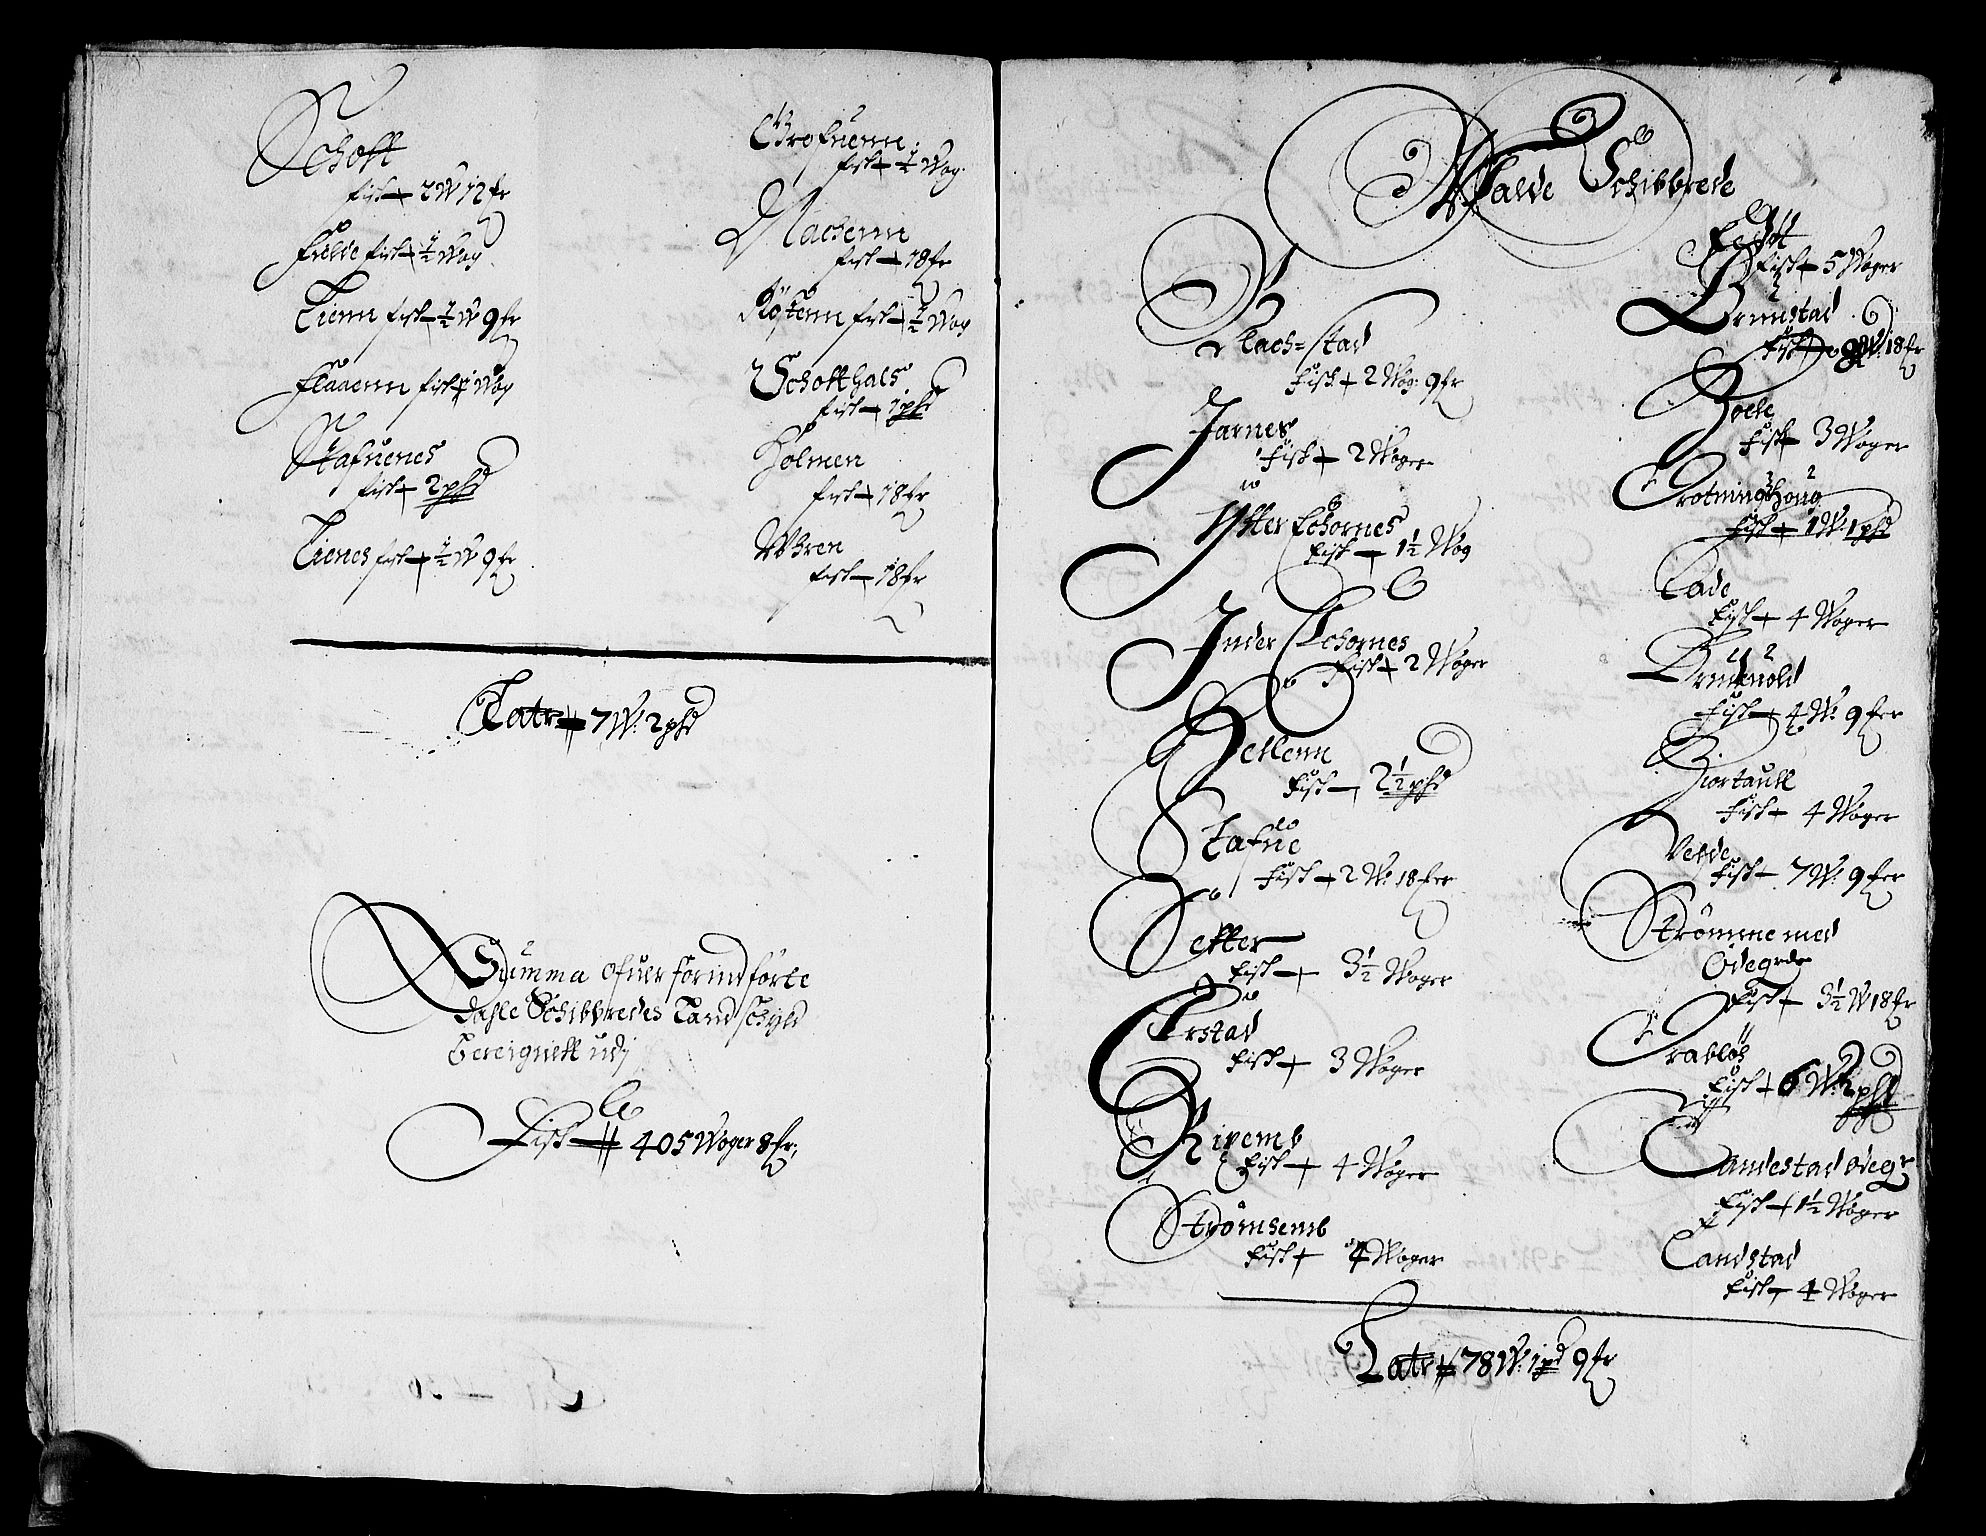 Schott
fisk – 2 W 12 fr
Fielde fisk – ½ Wog
Lienn fisk – ½ W 9 fr
Flaaenn fisk 1 Wog
Stafuenes
fisk – 2 pfd
Lienes fisk – ½ W 9 fr
Grofuenn
fisk – ½ Wog
Machenn
fisk – 18 fr
Röstenn fisk – ½ Wog
Schotthals
fisk – 1 pfd
Holmen
fisk – 18 fr
Whren
fisk – 18 fr
Latr 7 W: 2 pfd
Summa ofuer forindförte
dahle Schibbredes Landschyld
bereignett udj
Fisk 405 Woger 8 fr:
Walde Schibbrede
Flach=stad
Fisk – 2 Wog: 9 fr
Jarnes
Fisk – 2 Woger
Ytter Echornes
Fisk – 1½ Wog
Inder Echornes
Fisk – 2 Woger
Hellenn
Fisk – 2½ pfd
Stafue
Fisk – 2 W: 18 fer
Setter
Fisk – 3½ Woger
Erstad
Fisk – 3 Woger
Ripemb
Fisk – 4 Woger
Strömsemb
Fisk – 4 Woger
Fisk – 5 Woger
Brunstad
Fisk – W: 18 fr
Hoele
Fisk – 3 Woger
Drotninghoug
Fisk – 1 W: 1 pfd
Lade
Fisk – 4 Woger
Brunuold
Fisk – 4 W: 9 fer
Hiortaull
Fisk – 4 Woger
Velde
Fisk – 7 W: 9 fer
Strömme med
Ödegrde
Fisk – 3½ W 18 fr
Fisk – 6 W: 2 pfd
Landestad ödegr
Fisk – 1½ Woger
Landstad
Fisk – 4 Woger
Latr 78 W: 1 pd 9 fr